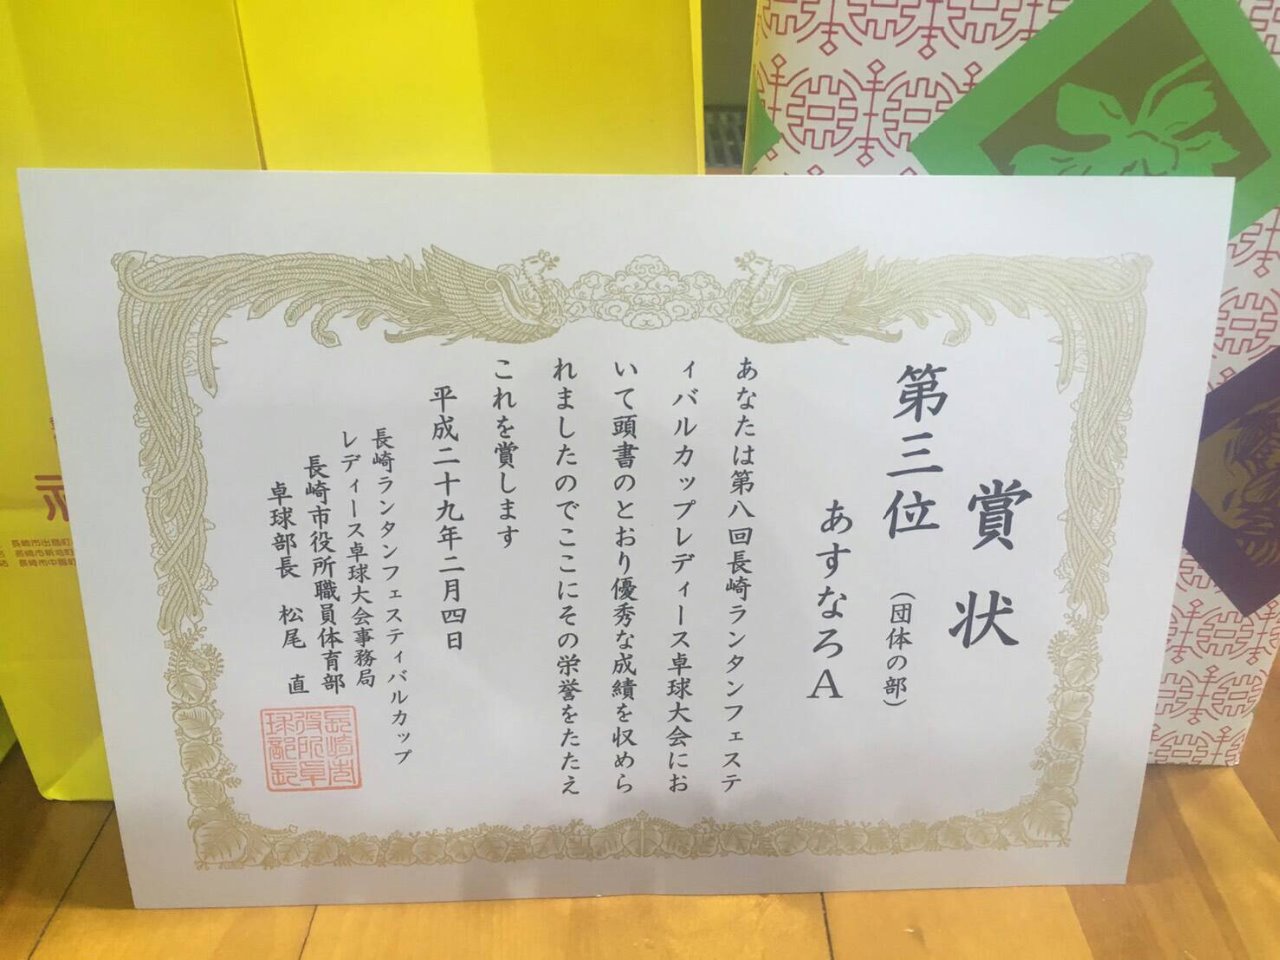 賞状
第三位（団体の部）
あすなろA
あなたは第八回長崎ランタンフェステ
ィバルカップレディース卓球大会にお
いて頭書のとおり優秀な成績を収めら
れましたのでここにその栄誉をたたえ
これを賞します
平成二十九年二月四日
長崎ランタンフェスティバルカップ
レディース卓球大会事務局
長崎市役所職員体育部
卓球部長 松尾 直
長崎市
役所卓
球部長